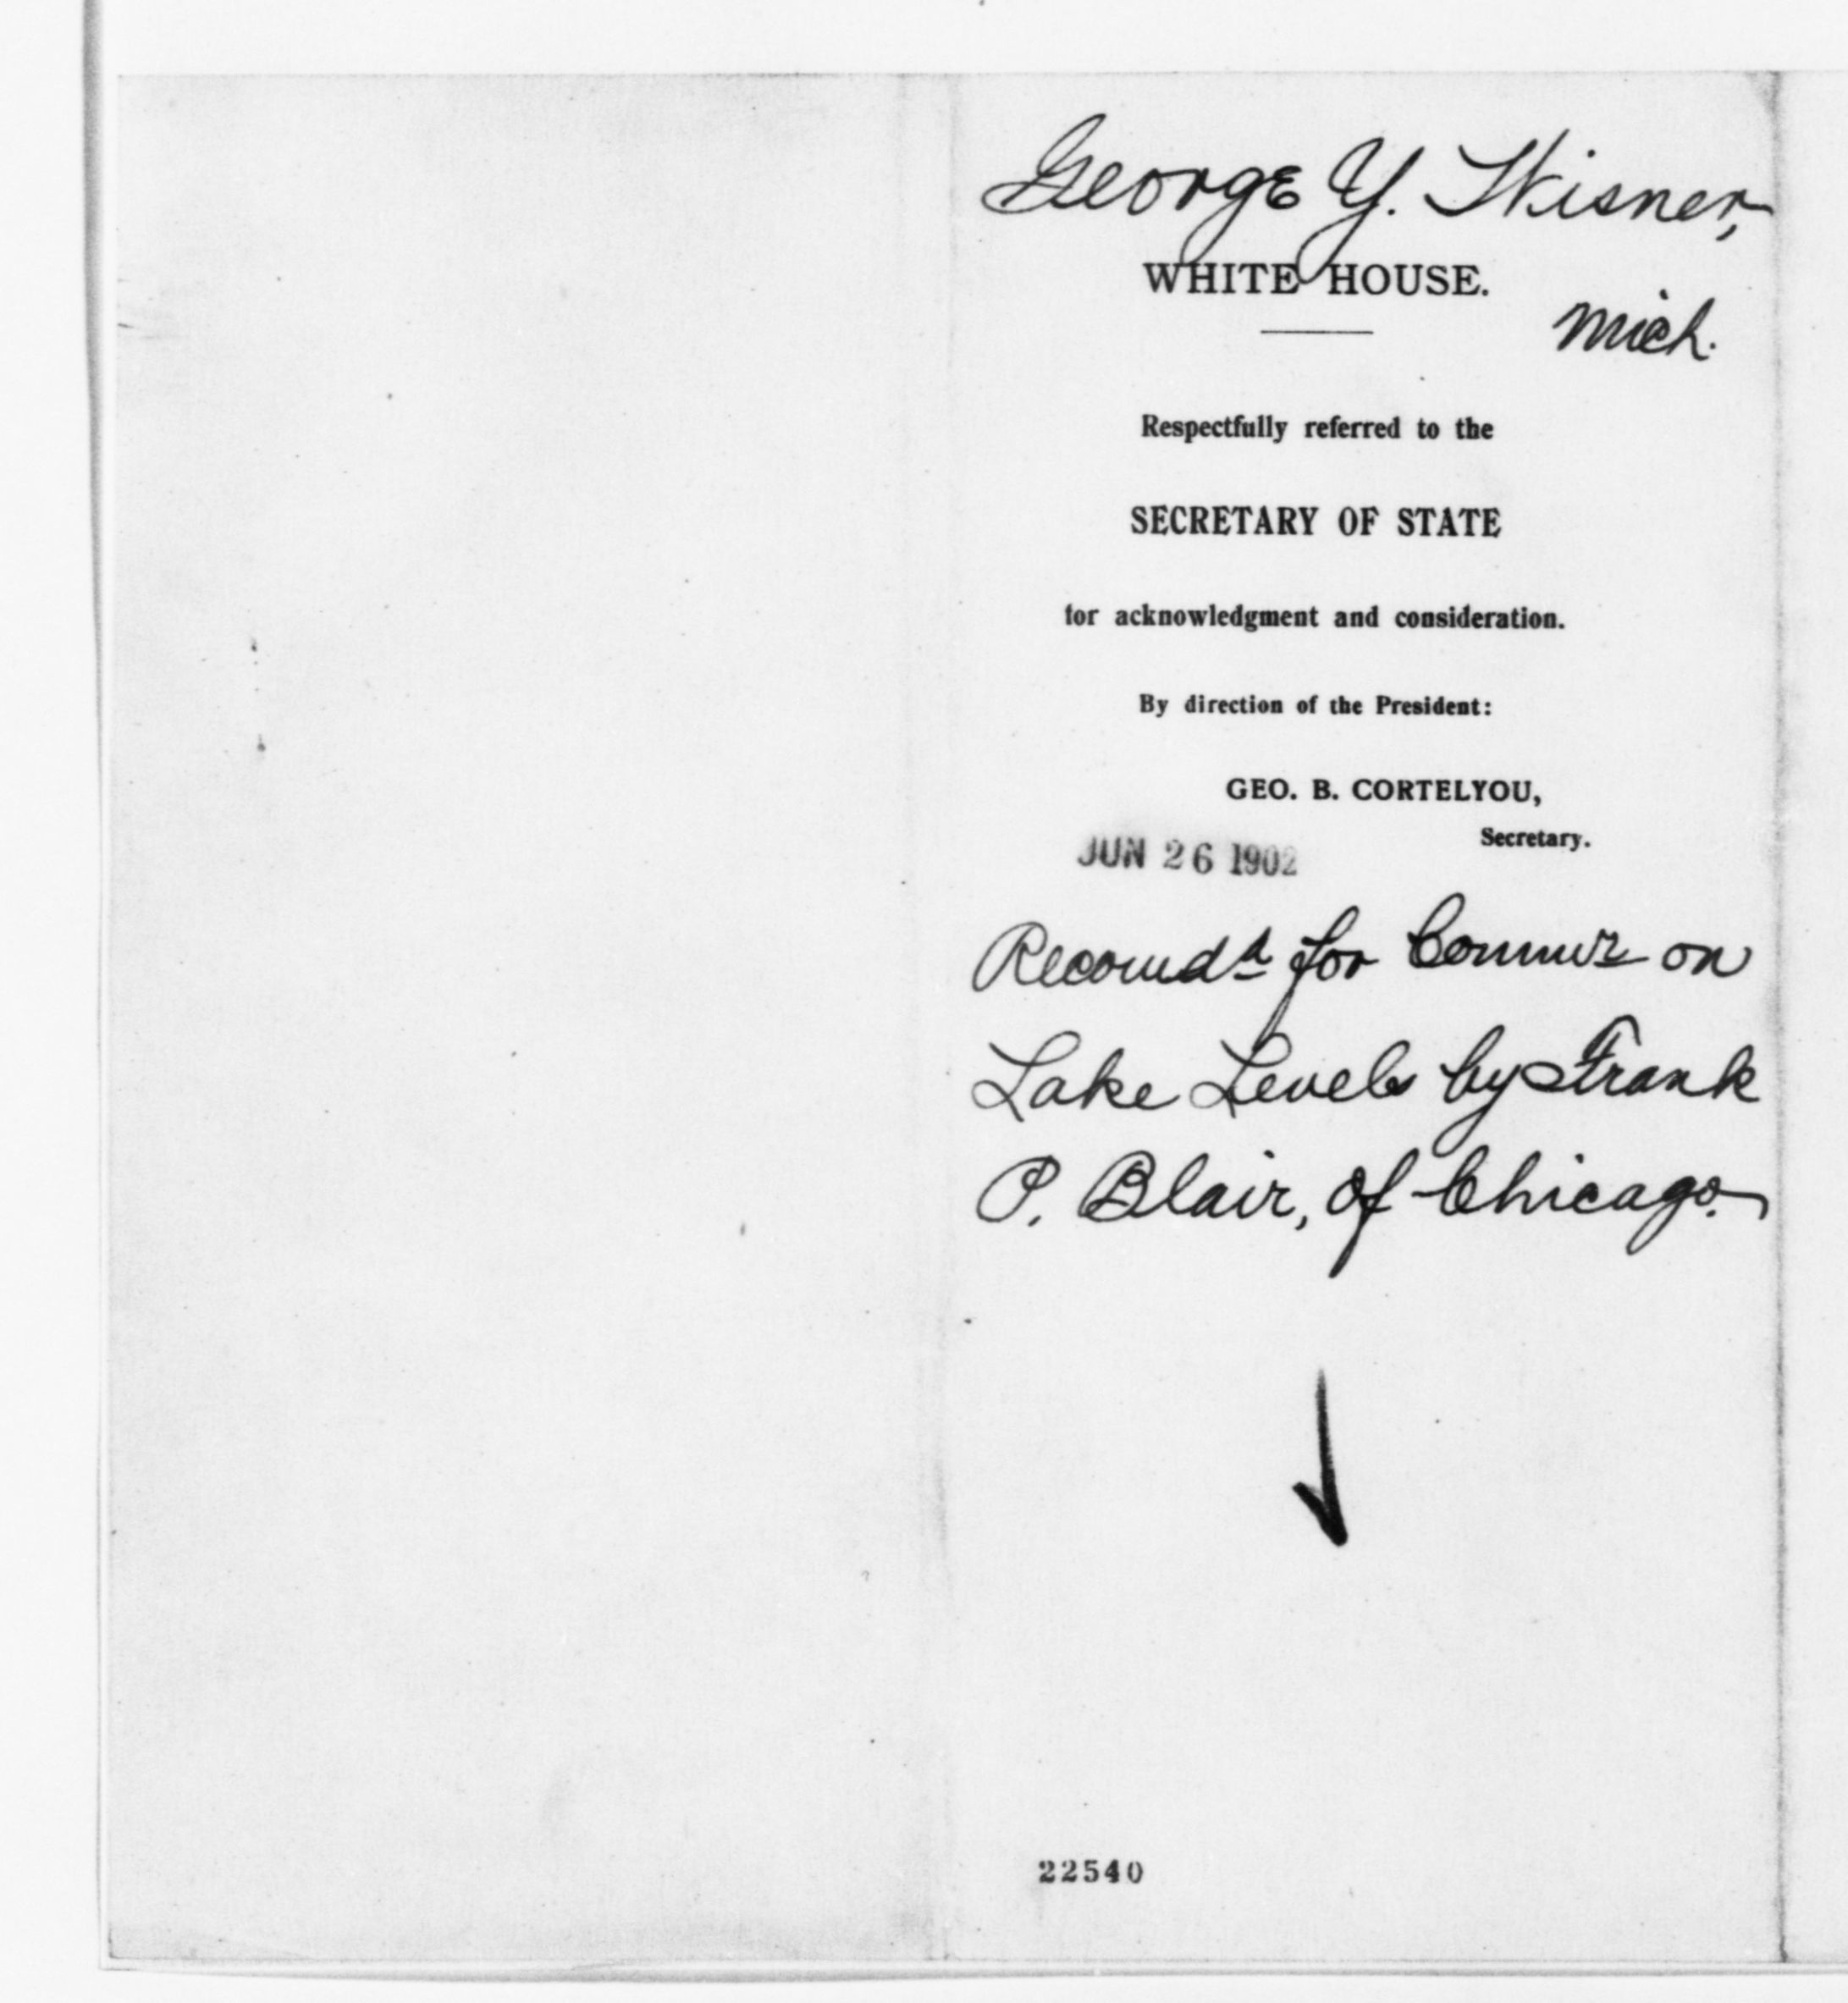 George Y. Wisner,
WHITE HOUSE.
Mich.
Respectfully referred to the
SECRETARY OF STATE
for acknowledgment and consideration.
By direction of the President:
GEO. B. CORTELYOU,
Secretary.
JUN 26 1902
Recomdd for Commr on
Lake Levels by Frank
P. Blair, of Chicago.
22540